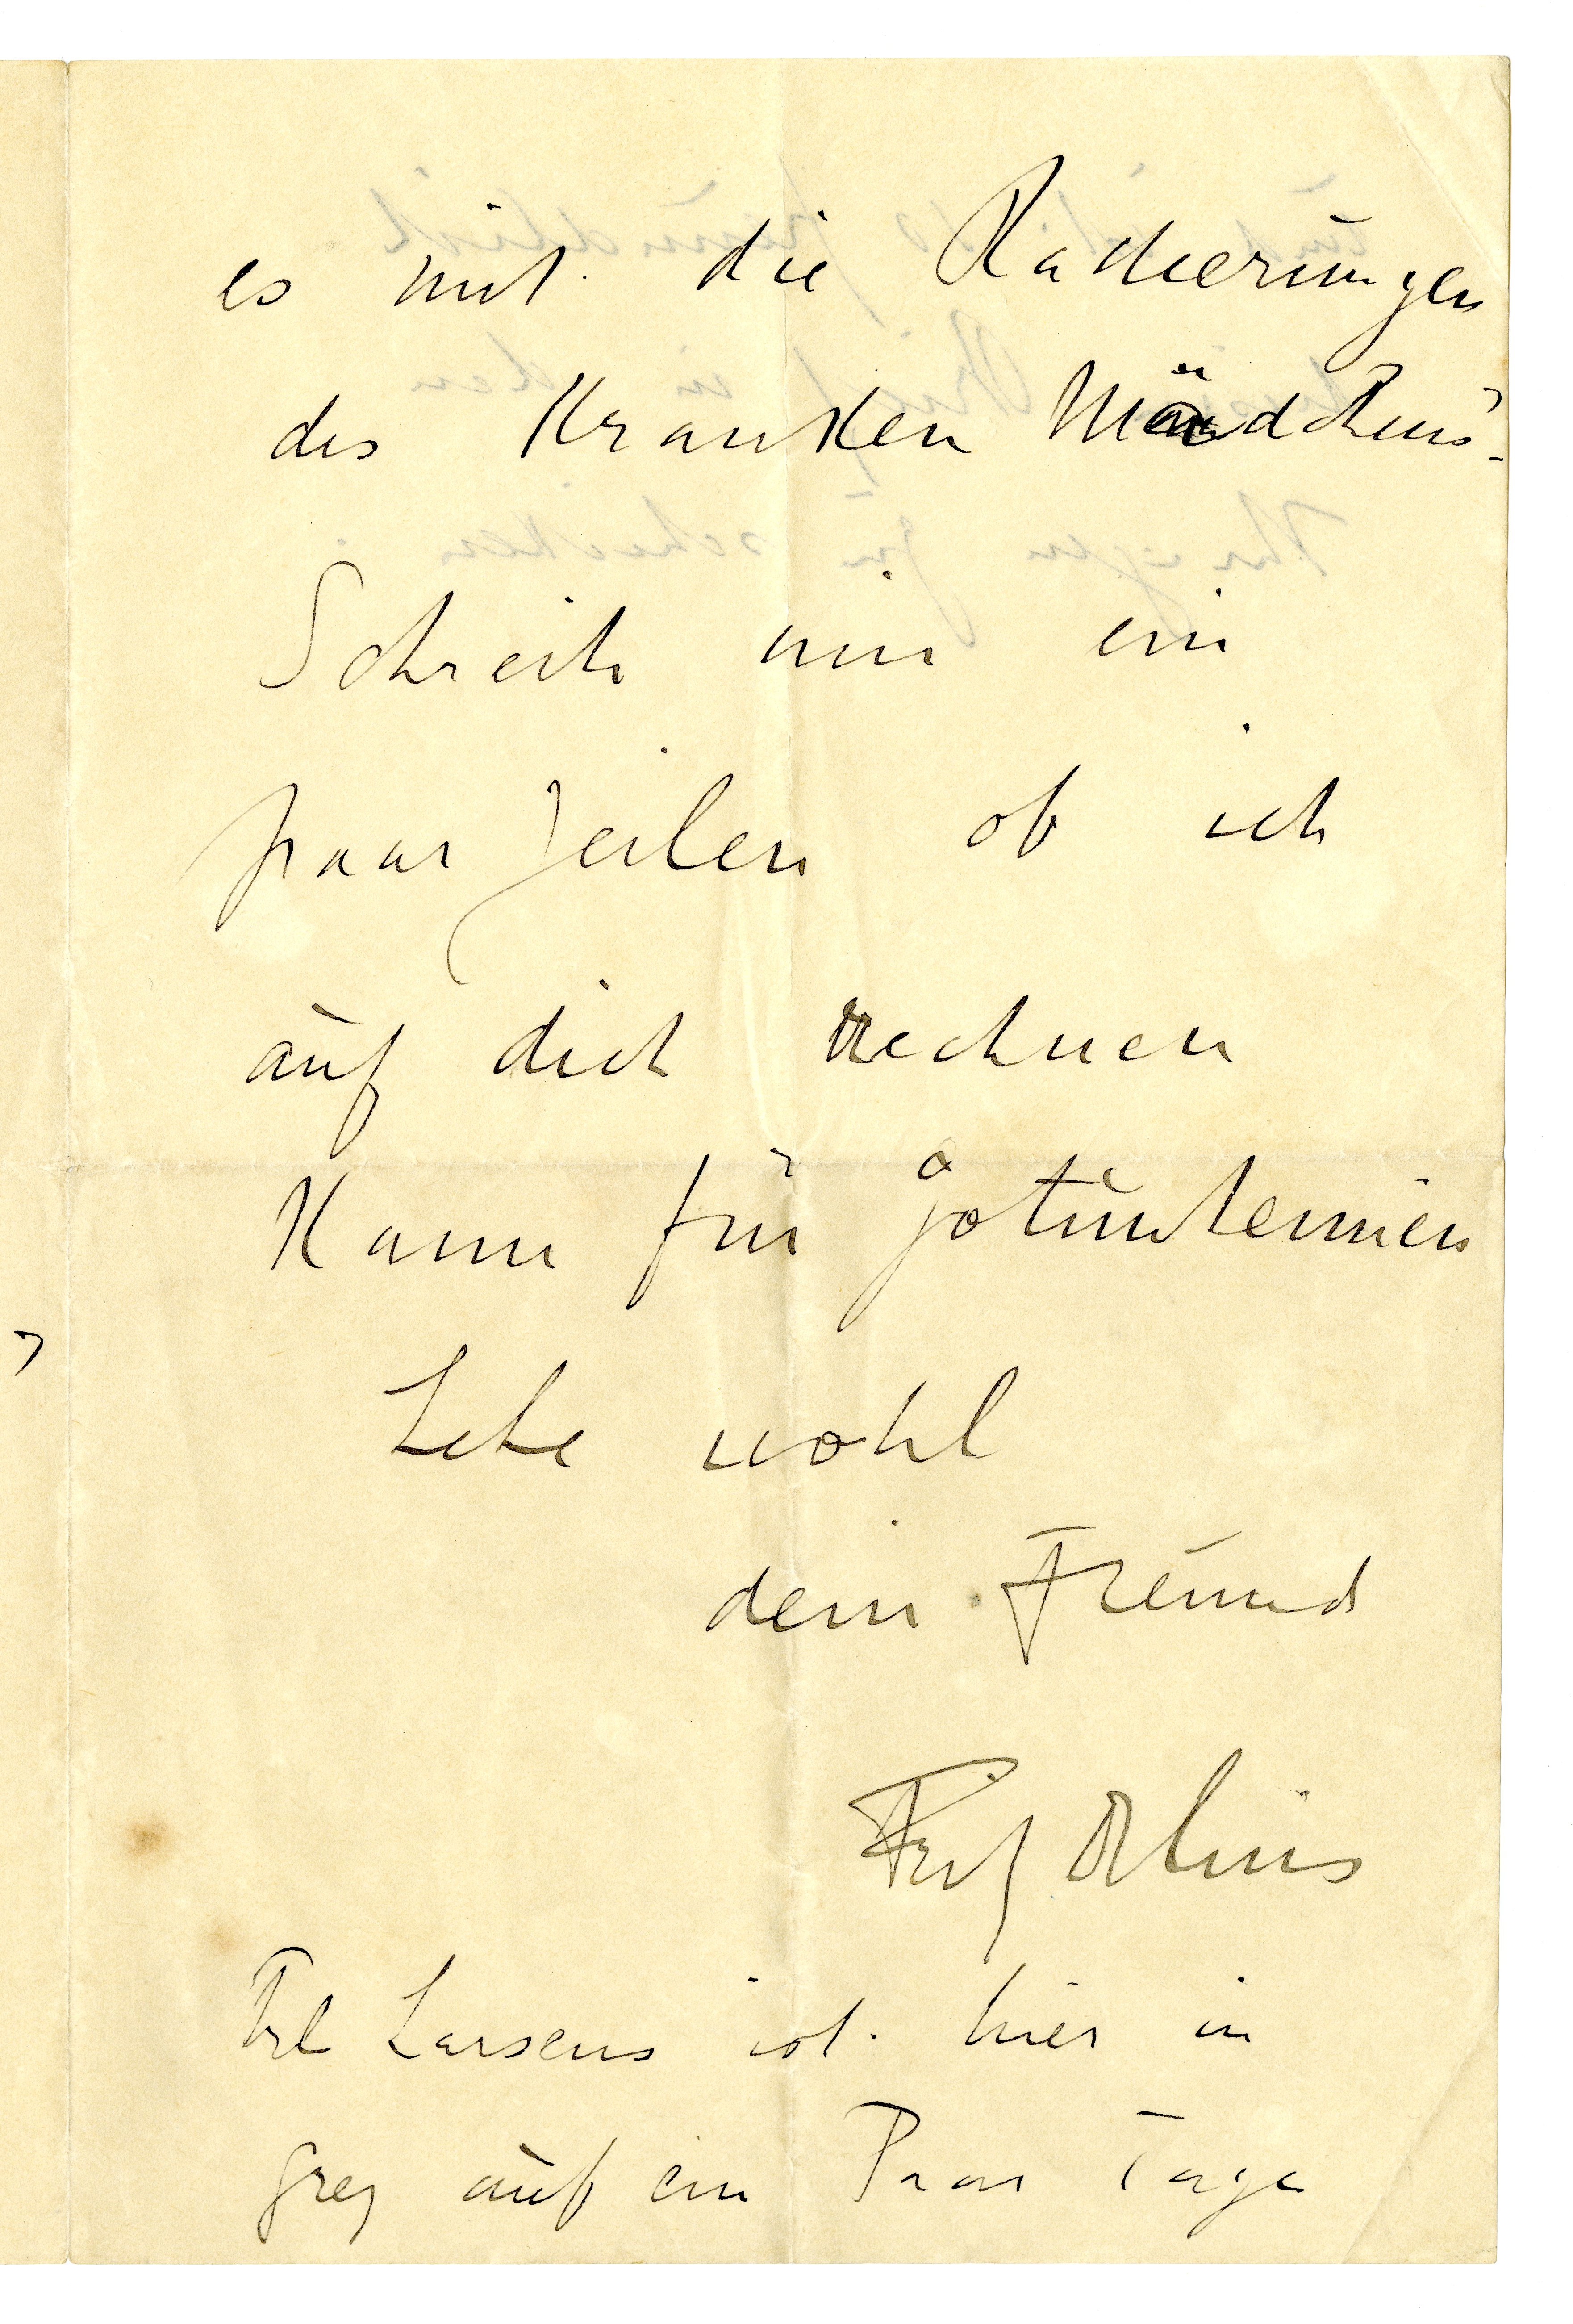 es mit die Radierungen
des Kranken Mädchens?
Schreib mir ein
paar Zeilen ob ich
auf dich rechnen
Kann für Jotunheimen
Lebe wohl
dein Freund
Fritz Delius
Frl Larsens ist hier in
Grez auf ein Paar Tage